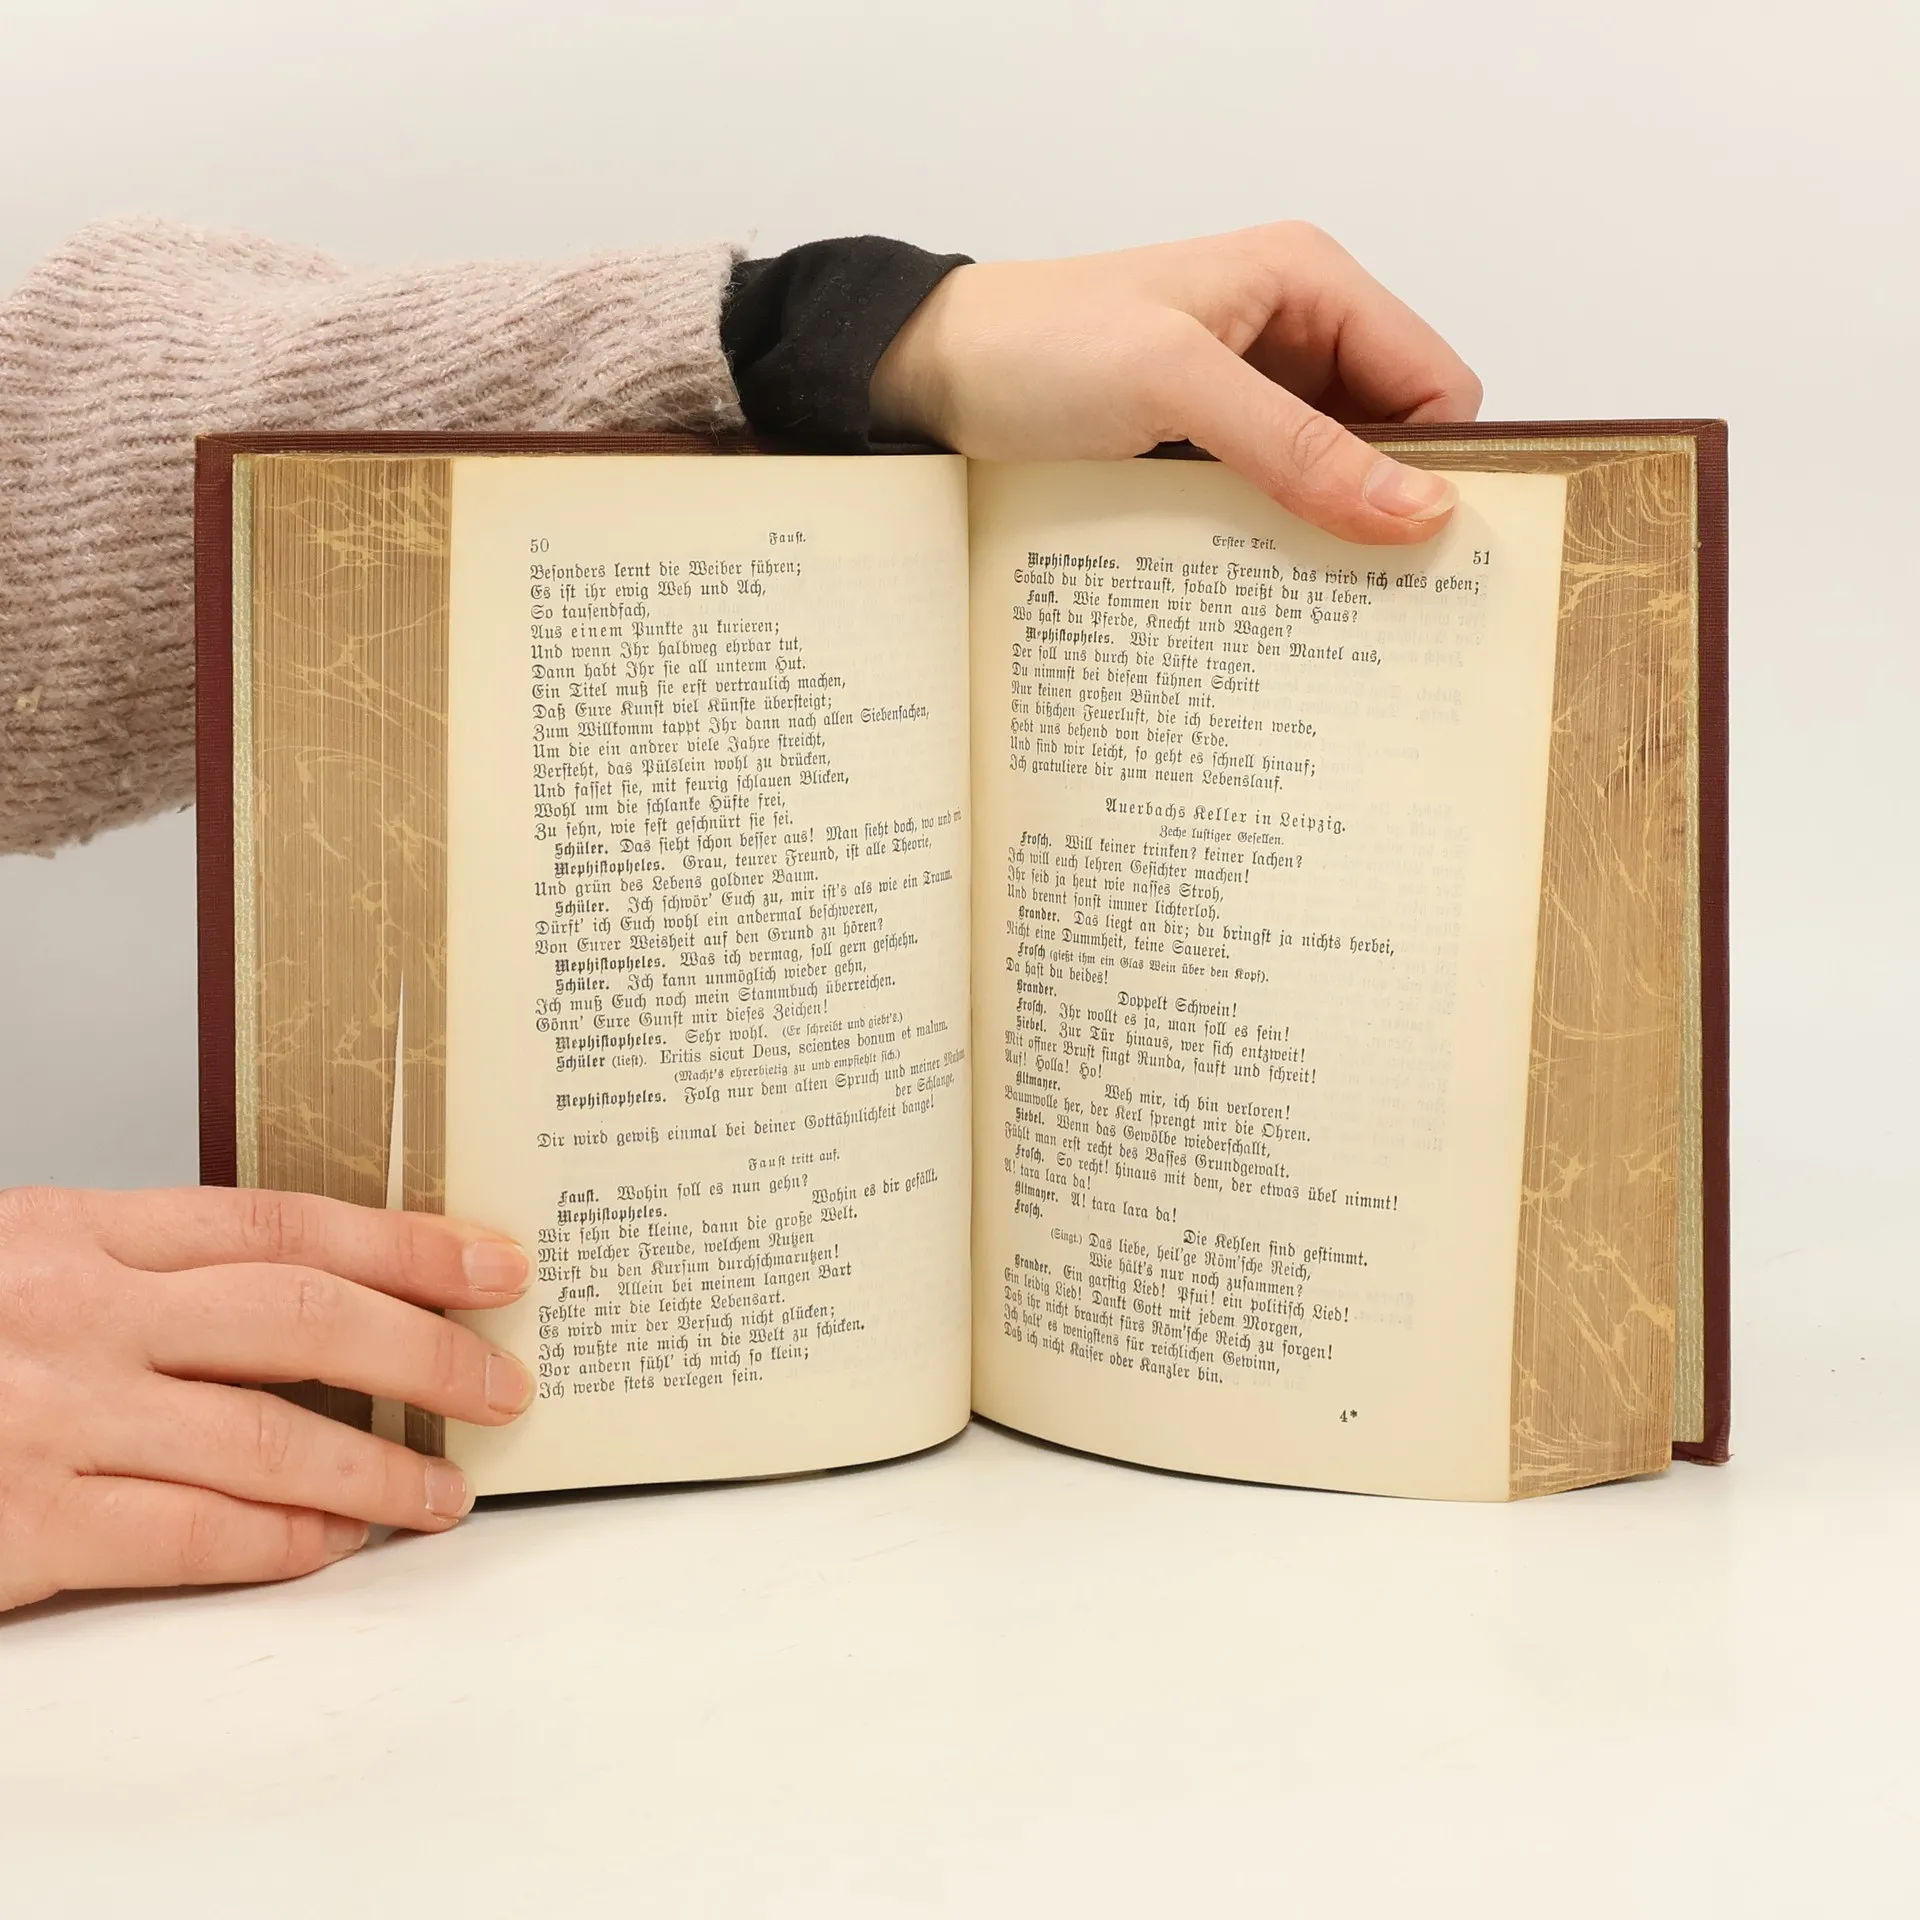 50
Faust.
Besonders lernt die Weiber führen;
Es ist ihr ewig Weh und Ach,
So tausendfach,
Aus einem Punkte zu kurieren;
Und wenn Ihr halbweg ehrbar tut,
Dann habt Ihr sie all unterm Hut.
Ein Titel muß sie erst vertraulich machen,
Daß Eure Kunst viel Künste übersteigt;
Zum Willkomm tappt Ihr dann nach allen Siebensachen,
Um die ein andrer viele Jahre streicht,
Versteht, das Pülslein wohl zu drücken,
Und fasset sie, mit feurig schlauen Blicken,
Wohl um die schlanke Hüfte frei,
Zu sehn, wie fest geschnürt sie sei.
Schüler. Das sieht schon besser aus! Man sieht doch, wo und wie
Mephistopheles. Grau, teurer Freund, ist alle Theorie,
Und grün des Lebens goldner Baum.
Schüler. Ich schwör' Euch zu, mir ist's als wie ein Traum.
Dürft' ich Euch wohl ein andermal beschweren,
Von Eurer Weisheit auf den Grund zu hören?
Mephistopheles. Was ich vermag, soll gern geschehn.
Schüler. Ich kann unmöglich wieder gehn,
Ich muß Euch noch mein Stammbuch überreichen.
Gönn' Eure Gunst mir dieses Zeichen!
Mephistopheles. Sehr wohl. (Er schreibt und giebt's.)
Schüler (liest). Eritis sicut Deus, scientes bonum et malum.
(Macht's ehrerbietig zu und empfiehlt sich.)
Mephistopheles. Folg nur dem alten Spruch und meiner Muhme
der Schlange,
Dir wird gewiß einmal bei deiner Gottähnlichkeit bange!
Faust tritt auf.
Faust. Wohin soll es nun gehn?
Mephistopheles. Wohin es dir gefällt.
Wir sehn die kleine, dann die große Welt.
Mit welcher Freude, welchem Nutzen
Wirst du den Kursum durchschmarutzen!
Faust. Allein bei meinem langen Bart
Fehlte mir die leichte Lebensart.
Es wird mir der Versuch nicht glücken;
Ich wußte nie mich in die Welt zu schicken.
Vor andern fühl' ich mich so klein;
Ich werde stets verlegen sein.
Erster Teil.
51
Mephistopheles. Mein guter Freund, das wird sich alles geben;
Sobald du dir vertraust, sobald weißt du zu leben.
Faust. Wie kommen wir denn aus dem Haus?
Wo hast du Pferde, Knecht und Wagen?
Mephistopheles. Wir breiten nur den Mantel aus,
Der soll uns durch die Lüfte tragen.
Du nimmst bei diesem kühnen Schritt
Nur keinen großen Bündel mit.
Ein bißchen Feuerluft, die ich bereiten werde,
Hebt uns behend von dieser Erde.
Und sind wir leicht, so geht es schnell hinauf;
Ich gratuliere dir zum neuen Lebenslauf.
Auerbachs Keller in Leipzig.
Zeche lustiger Gesellen.
Frosch. Will keiner trinken? keiner lachen?
Ich will euch lehren Gesichter machen!
Ihr seid ja heut wie nasses Stroh,
Und brennt sonst immer lichterloh.
Brander. Das liegt an dir; du bringst ja nichts herbei,
Nicht eine Dummheit, keine Sauerei.
Frosch (gießt ihm ein Glas Wein über den Kopf).
Da hast du beides!
Brander. Doppelt Schwein!
Frosch. Ihr wollt es ja, man soll es sein!
Siebel. Zur Tür hinaus, wer sich entzweit!
Mit offner Brust singt Runda, sauft und schreit!
Auf! Holla! Ho!
Altmayer. Weh mir, ich bin verloren!
Baumwolle her, der Kerl sprengt mir die Ohren.
Siebel. Wenn das Gewölbe wiederschallt,
Fühlt man erst recht des Basses Grundgewalt.
Frosch. So recht! hinaus mit dem, der etwas übel nimmt!
A! tara lara da!
Altmayer. A! tara lara da!
Frosch. Die Kehlen sind gestimmt.
(Singt.) Das liebe, heil'ge Röm'sche Reich,
Wie hält's nur noch zusammen?
Brander. Ein garstig Lied! Pfui! ein politisch Lied!
Ein leidig Lied! Dankt Gott mit jedem Morgen,
Daß ihr nicht braucht fürs Röm'sche Reich zu sorgen!
Ich halt' es wenigstens für reichlichen Gewinn,
Daß ich nicht Kaiser oder Kanzler bin.
4*